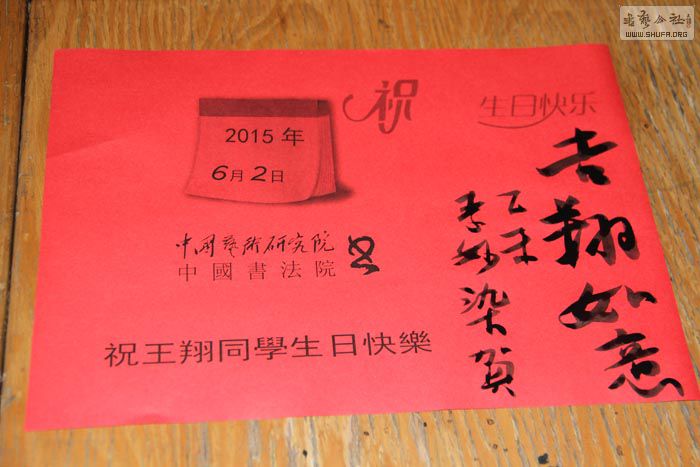 書藝公社
WWW.SHUFA.ORG
祝
生日快乐
2015年
6月2日
中国艺术研究院
中國書法院
祝王翔同學生日快樂
吉翔如意
乙未
李
染翰